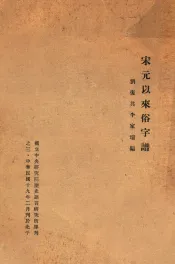 宋元以來俗字譜
劉復共李家瑞編
國立中央研究院歷史語言研究所單刊
之三·中華民國十九年二月刊於北平